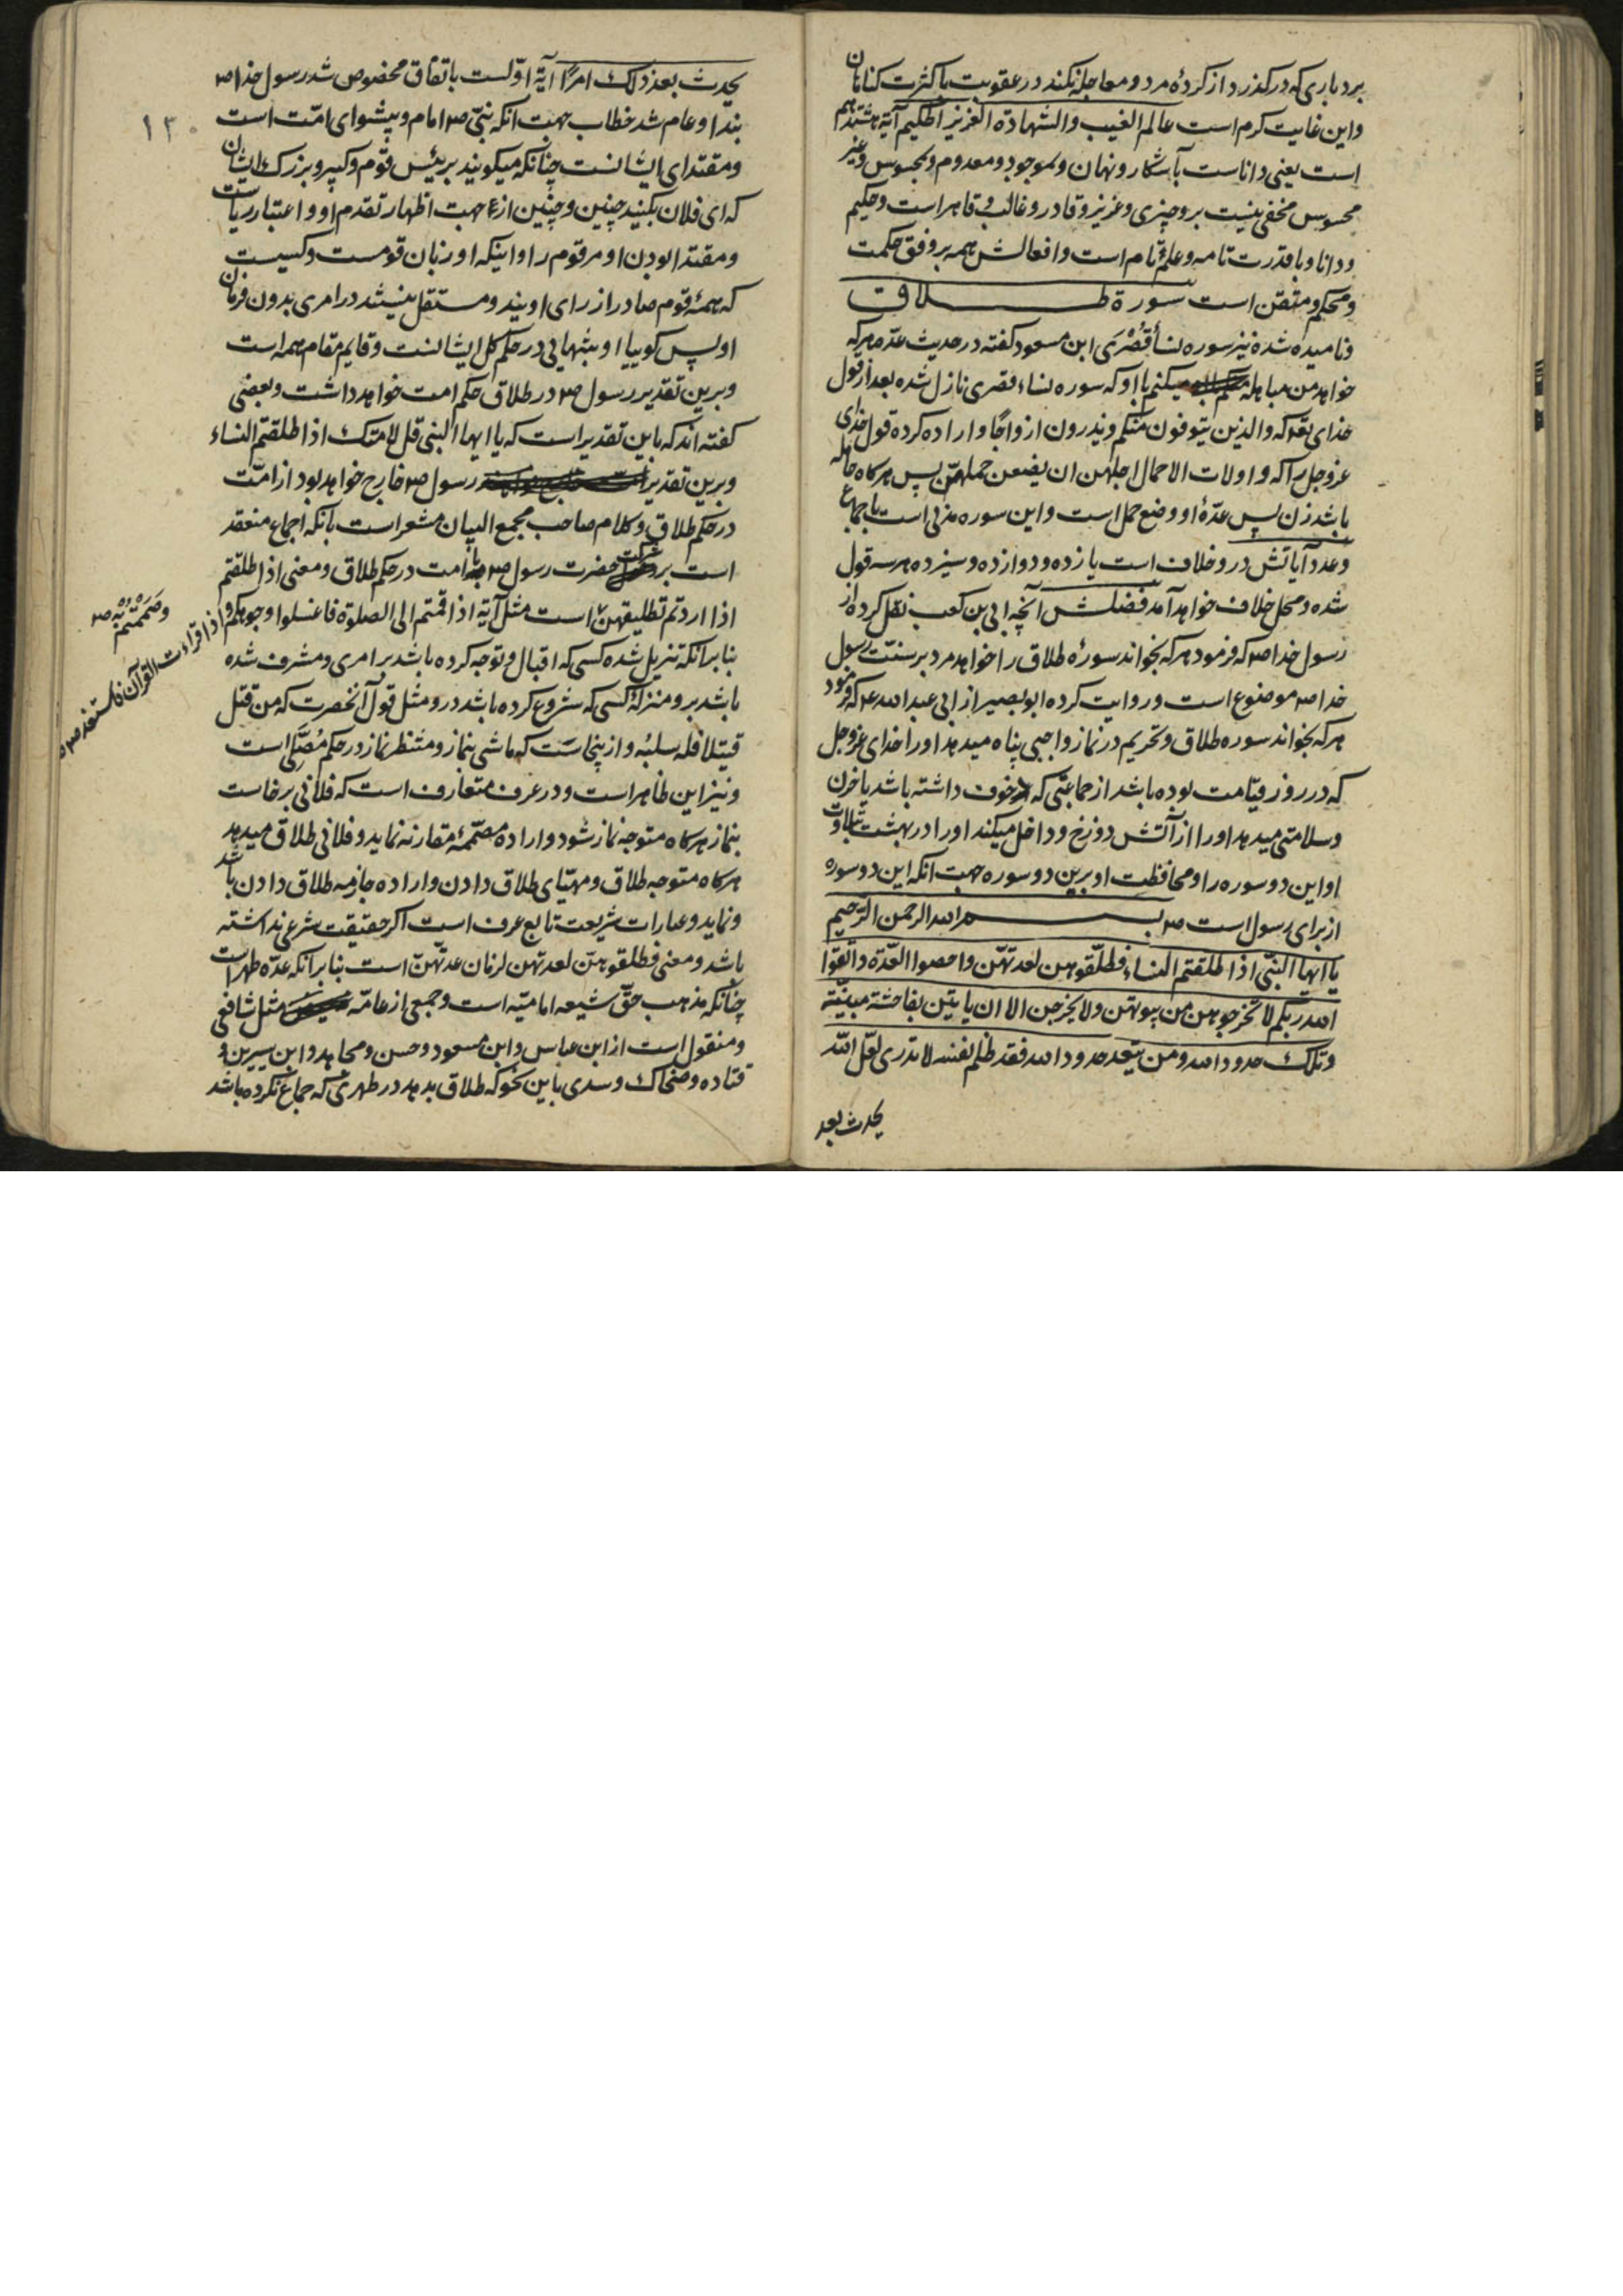 بردباری که درکذرد از کردهٔ مرد و معاجله نکند در عقوبت با کثرت کناهان
واین غایت کرم است عالم الغیب والشهادة العزیز الحکیم آیهٔ هشتدهم
است یعنی داناست بآشکار و نهان و بموجود و معدوم و بمحسوس و غیر
محسوس مخفی نیست برو چیزی و عزیز و قادر و غالب و قاهر است و حکیم
و دانا و با قدرت تامه و علم تام است و افعالش همه بر وفق حکمت
و محکم و متقن است سورة طلاق
و نامیده شده نیز سوره نسأ قُصْرَی ابن مسعود کفته در حدیث عدّه هرکه
خواهد من مباهله میکنم با او که سوره نساء قصری نازل شده بعد از قول
خدای تعه که والذین یتوفون منکم ویذرون ازواجًا و اراده کرده قول خدای
عزوجل را که و اولات الاحمال اجلهن ان یضعن حملهنّ پس هرکاه حامله
باشد زن پس عدّهٔ او وضع حمل است و این سوره مدنی است باجماع
و عدد آیاتش درو خلاف است یازده و دوازده و سیزده هر سه قول
شده و محل خلاف خواهد آمد فضلش آنچه ابی بن کعب نقل کرده از
رسول خدا ص که فرمود هرکه بخواند سورهٔ طلاق را خواهد مرد بر سنّت رسول
خدا ص موضوع است و روایت کرده ابوبصیر از ابی عبدالله ع که فرمود
هرکه بخواند سوره طلاق و تحریم در نماز واجبی پناه میدهد او را خدای عزوجل
که در روز قیامت بوده باشد از جماعتی که خوف داشته باشد یا حزن
و سلامتی میدهد او را از آتش دوزخ و داخل میکند او را در بهشت بتلاوت
او این دو سوره را و محافظت او برین دو سوره جهت آنکه این دو سوره
از برای رسول است ص بسم الله الرحمن الرّحیم
یا ایها النبّی اذا طلقتم النساء فطلّقوهن لعدتهّن واحصوا العدّة واتقوا
الله ربکم لا تخرجوهن من بیوتهّن ولا یخرجن الا ان یاتین بفاحشة مبیّنة
وتلک حدود الله ومن یتعد حدود الله فقد ظلم نفسه لا تدری لعّل الله
یحدث بعد
یحدث بعد ذلک امرًا آیهٔ اوّلست باتفاق مخصوص شد رسول خدا ص
بندا و عام شد خطاب جهت انکه نبّی ص امام و پیشوای امّت است
و مقتدای ایشانست چنانکه میکویند برئیس قوم و کبیر و بزرک ایشان
که ای فلان بکنید چنین و چنین از جهت اظهار تقدم او و اعتبار ریاست
و مقتدا بودن او مر قوم را و اینکه او زبان قومست و کسیست
که همهٔ قوم صادر از رای اویند و مستقل نیستند در امری بدون فرمان
او پس کوییا او بتنهایی در حکم کل ایشانست و قایم مقام همه است
و برین تقدیر رسول ص در طلاق حکم امت خواهد داشت و بعضی
کفته اند که باین تقدیر است که یا ایها النبی قل لامتک اذا طلقتم النساء
و برین تقدیر رسول ص خارج خواهد بود از امّت
در حکم طلاق و کلام صاحب مجمع البیان مشعر است بانکه اجماع منعقد
است بر شرکت حضرت رسول ص با امت در حکم طلاق و معنی اذا طلقتم
اذا اردتم تطلیقهن است مثل آیهٔ اذا قمتم الی الصلوة فاغسلوا وجوهکم و اذا قراءت القرآن فاستعذ ص
وصَمَمْتُم به ص
بنا بر انکه تنزیل شده کسی که اقبال و توجه کرده باشد بر امری و مشرف شده
باشد برو منزلهٔ کسی که شروع کرده باشد درو مثل قول آنحضرت که من قتل
قتیلا فله سلبُه و ازینجاست که ماشی بنماز و منتظر نماز در حکم مُصَلّی است
و نیز این ظاهر است و در عرف متعارف است که فلانی برخاست
بنماز هرکاه متوجه نماز شود و اراده مصمّمهٔ مقارنه نماید و فلانی طلاق میدهد
هرکاه متوجه طلاق و مهیّای طلاق دادن و اراده جازمه طلاق دادن باشد
و نماید و عبارات شریعت تابع عرف است اکر حقیقت شرعی نداشته
باشد و معنی فطلقوهنّ لعدتهن لزمان عدتهنّ است بنا بر آنکه عدّه طهر است
چنانکه مذهب حقّ شیعه امامیّه است و جمعی از عامّه مثل شافعی
و منقول است از ابن عباس و ابن مسعود و حسن و مجاهد و ابن سیرین و
قتاده و ضحاک و سدی باین نحو که طلاق بدهد در طهری که جماع نکرده باشد
۱۳۰